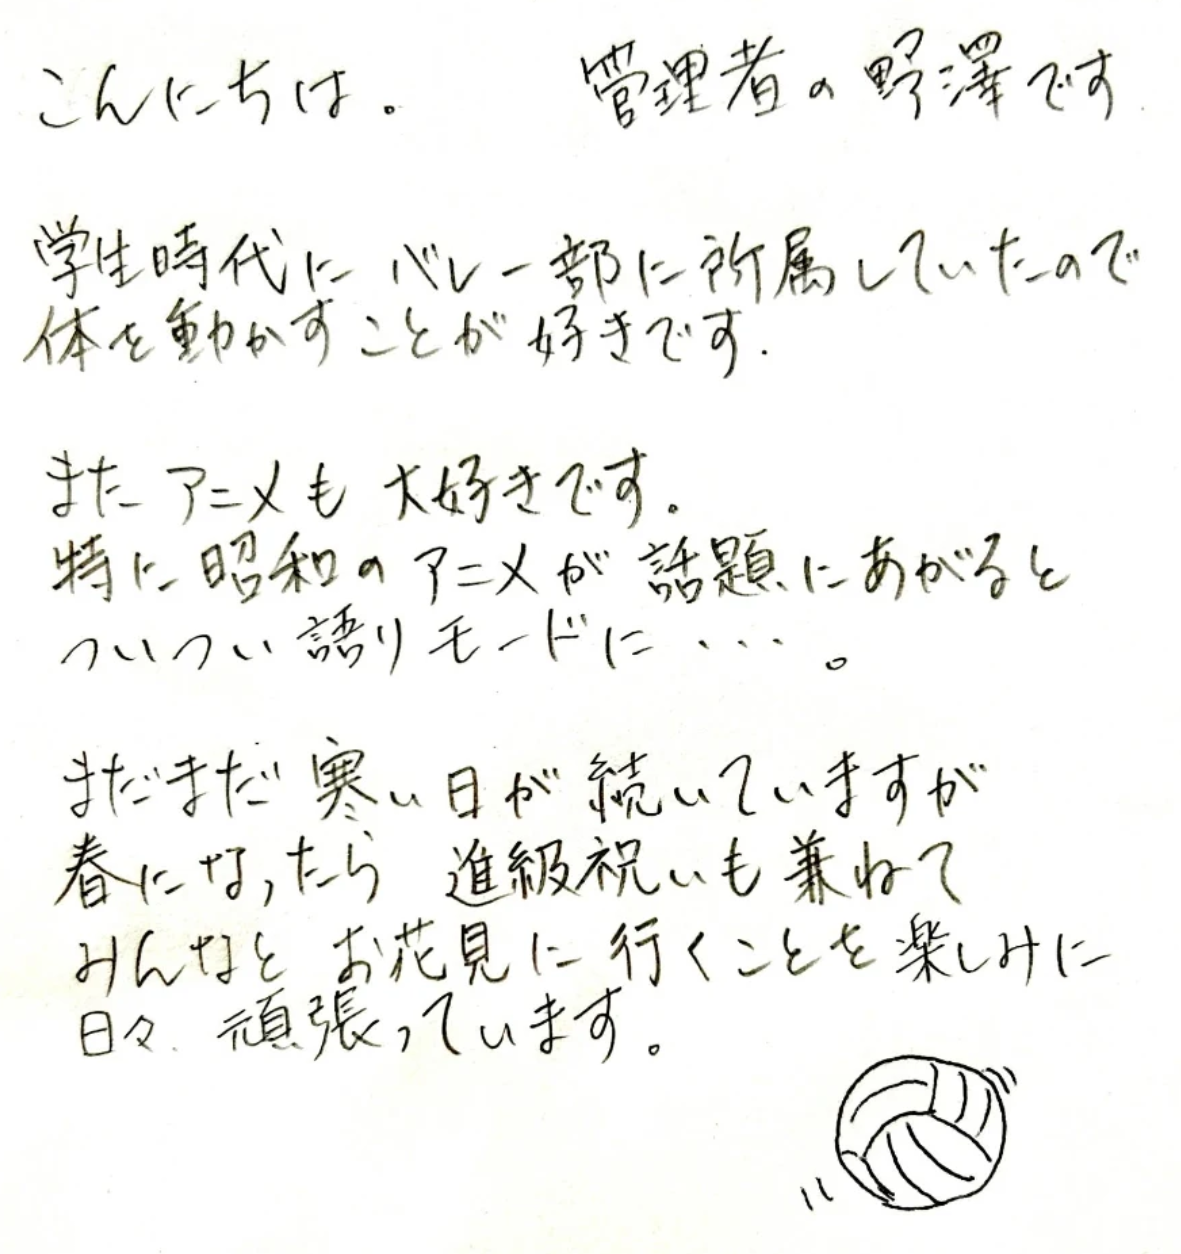 こんにちは。 管理者の野澤です
学生時代に バレー部に所属していたので
体を動かすことが好きです.
また アニメも 大好きです。
特に 昭和のアニメが 話題にあがると
ついつい 語りモードに ・・・・。
まだまだ 寒い日が 続いていますが
春になったら 進級祝いも兼ねて
みんなと お花見に 行くことを楽しみに
日々 頑張っています。